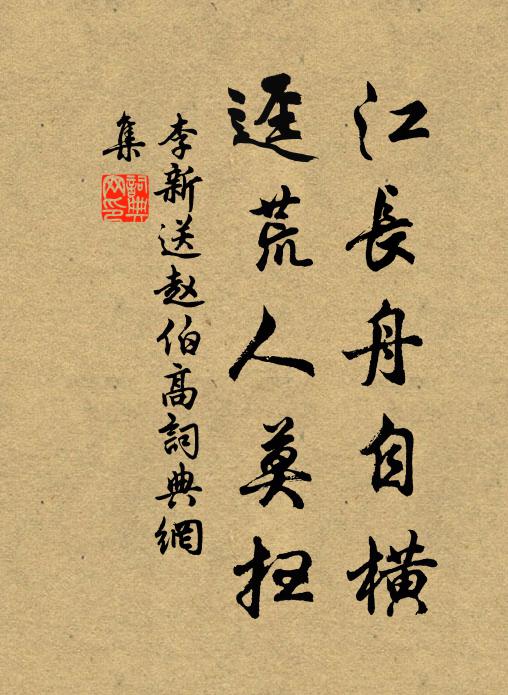 江長舟自橫
逕荒人莫枉
李新送赵伯高詞典網
集
詞典
网印